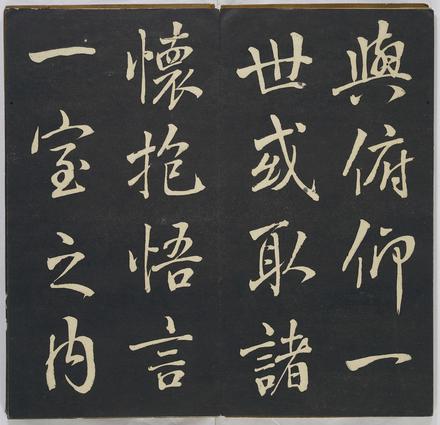 與俯仰一
世或取諸
懷抱悟言
一室之内